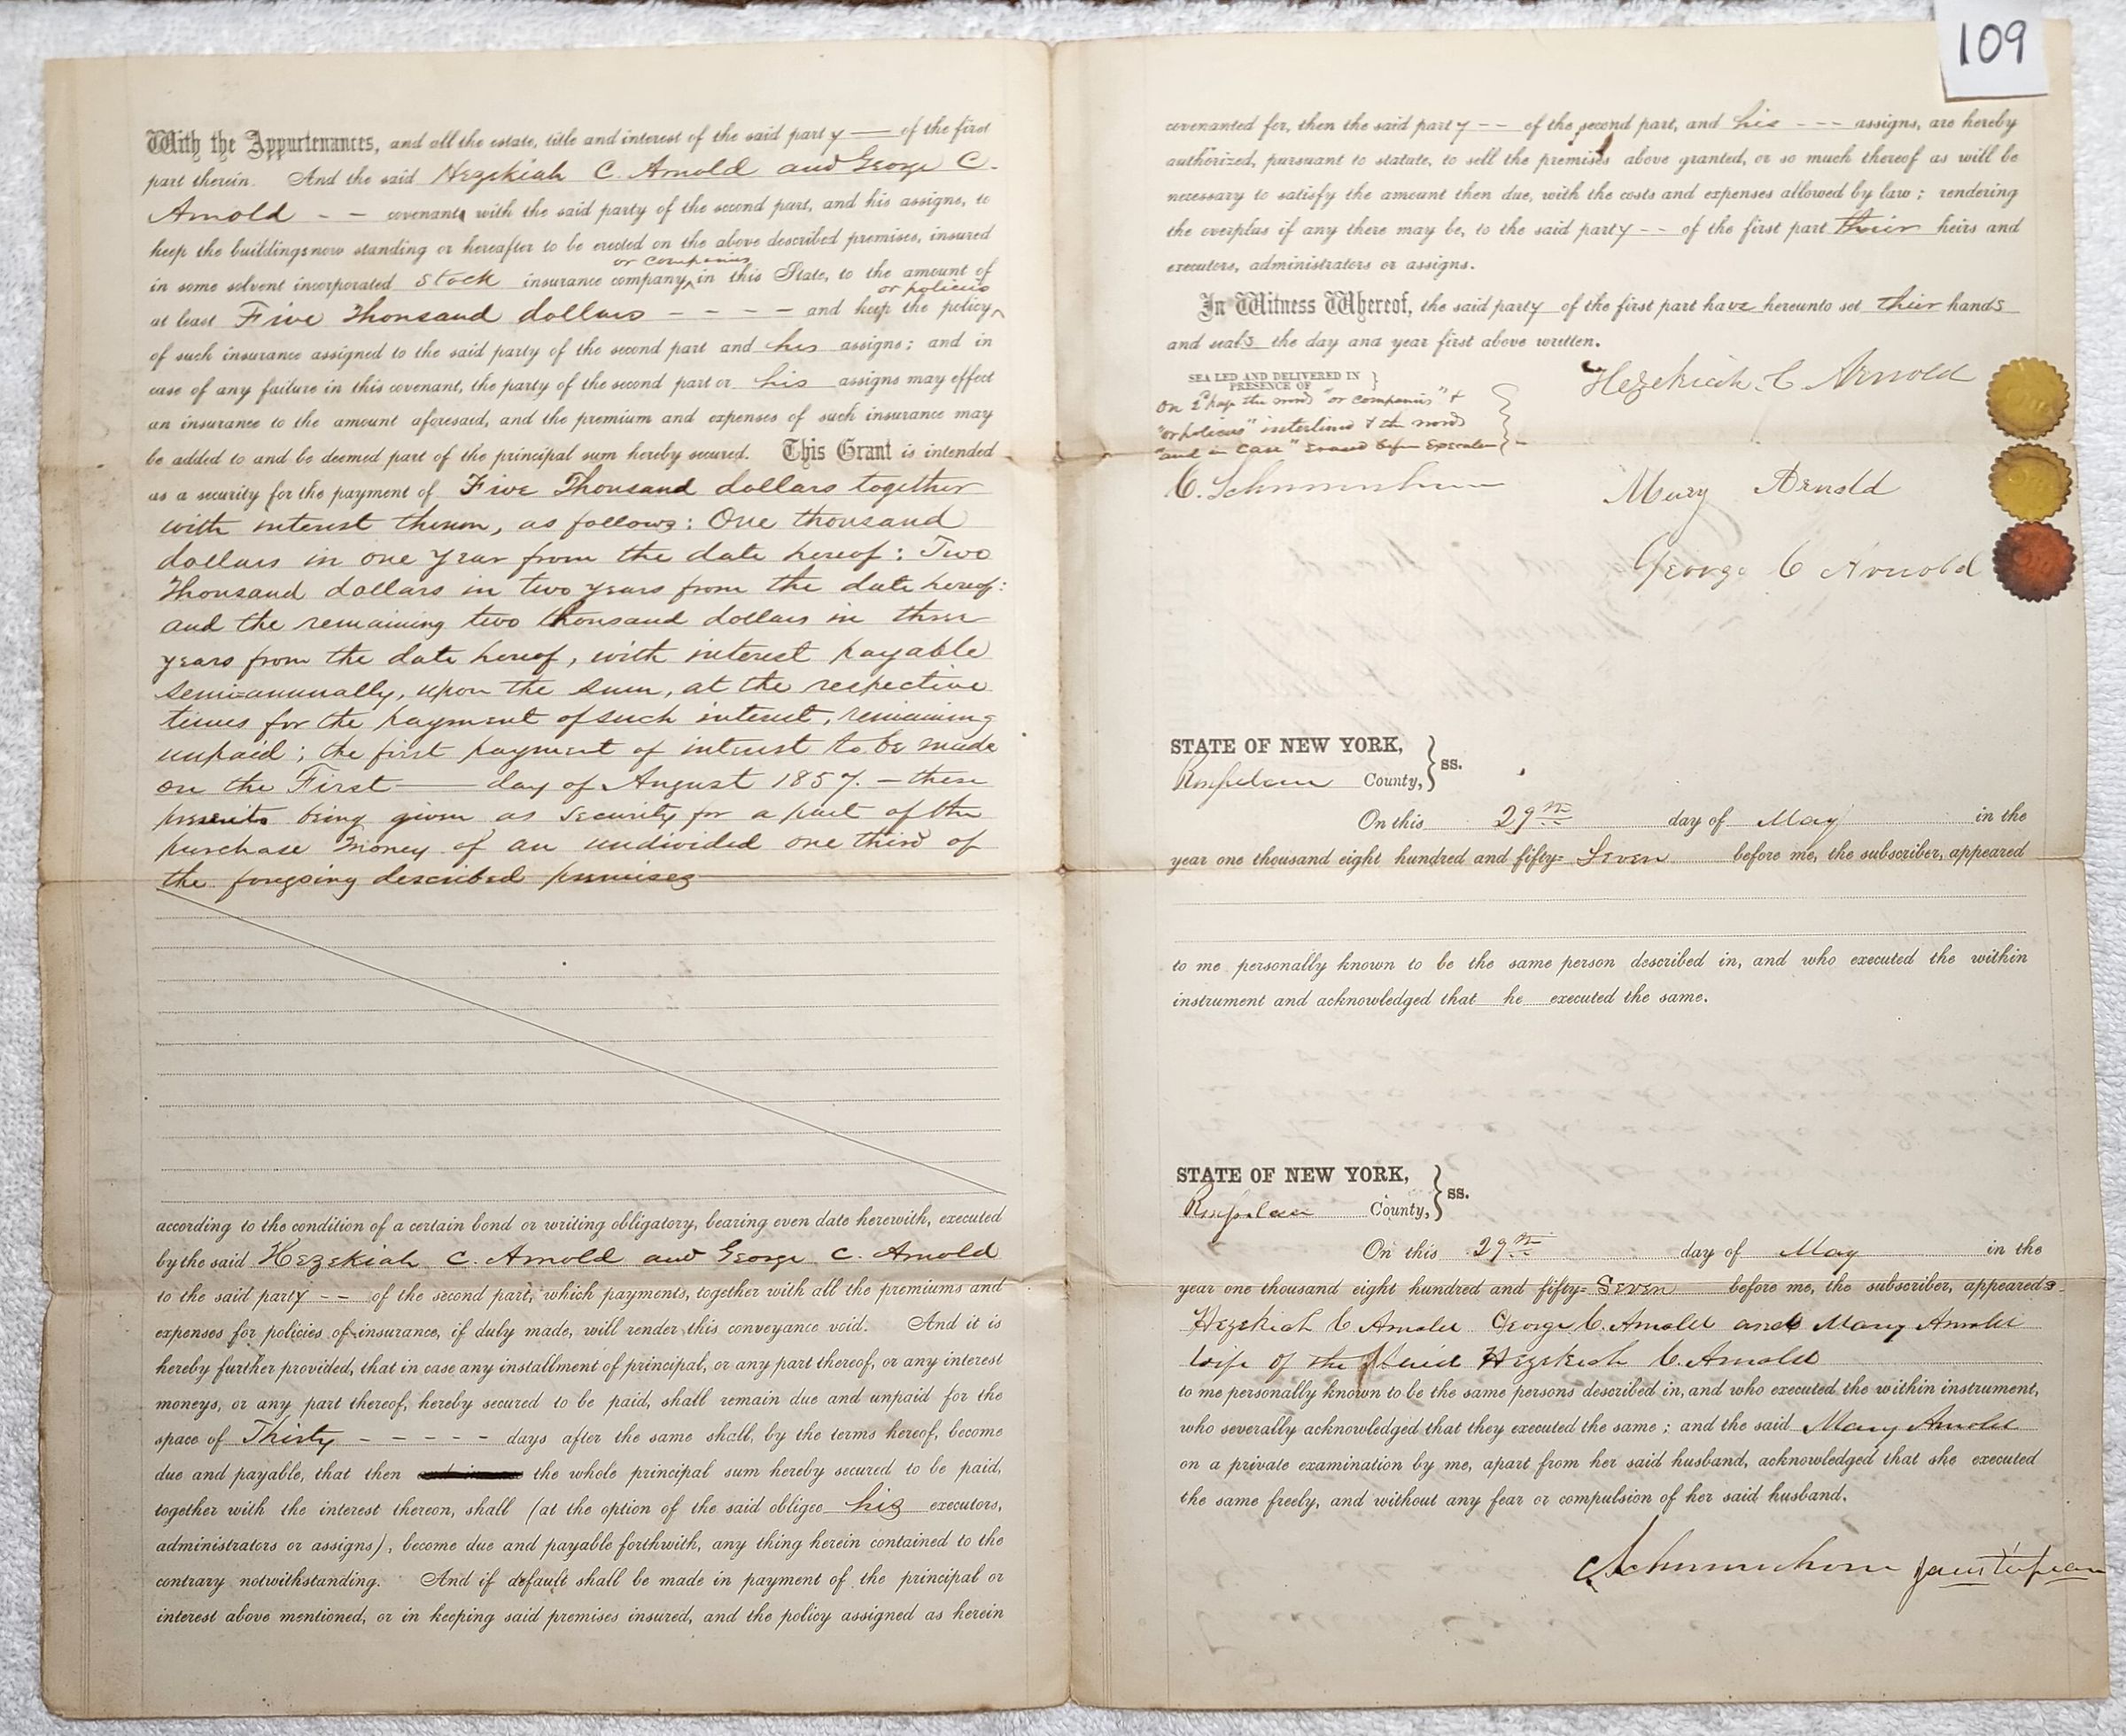 With the Appurtenances, and all the estate, title and interest of the said party — of the first
part therein. And the said Hezekiah C. Arnold and George C.
Arnold - - covenants with the said party of the second part, and his assigns, to
keep the buildings now standing or hereafter to be erected on the above described premises, insured
or companies
in some solvent incorporated Stock insurance company ‸ in this State, to the amount of
or policies
at least Five Thousand dollars - - - - and keep the policy ‸
of such insurance assigned to the said party of the second part and his assigns; and in
case of any failure in this covenant, the party of the second part or his assigns may effect
an insurance to the amount aforesaid, and the premium and expenses of such insurance may
be added to and be deemed part of the principal sum hereby secured. This Grant is intended
as a security for the payment of Five Thousand dollars together
with interest thereon, as follows: One thousand
dollars in one year from the date hereof: Two
Thousand dollars in two years from the date hereof:
and the remaining two thousand dollars in three
years from the date hereof, with interest payable
semi-annually, upon the sum, at the respective
times for the payment of such interest, remaining
unpaid; the first payment of interest to be made
on the First — day of August 1857. — these
presents being given as security for a part of the
purchase money of an undivided one third of
the foregoing described premises
according to the condition of a certain bond or writing obligatory, bearing even date herewith, executed
by the said Hezekiah C. Arnold and George C. Arnold
to the said party - - of the second part, which payments, together with all the premiums and
expenses for policies of insurance, if duly made, will render this conveyance void. And it is
hereby further provided, that in case any installment of principal, or any part thereof, or any interest
moneys, or any part thereof, hereby secured to be paid, shall remain due and unpaid for the
space of Thirty - - - - - days after the same shall, by the terms hereof, become
due and payable, that then the whole principal sum hereby secured to be paid,
together with the interest thereon, shall (at the option of the said obligee his executors,
administrators or assigns), become due and payable forthwith, any thing herein contained to the
contrary notwithstanding. And if default shall be made in payment of the principal or
interest above mentioned, or in keeping said premises insured, and the policy assigned as herein
109
covenanted for, then the said party - - of the second part, and his - - - assigns, are hereby
authorized, pursuant to statute, to sell the premises above granted, or so much thereof as will be
necessary to satisfy the amount then due, with the costs and expenses allowed by law; rendering
the overplus if any there may be, to the said party - - of the first part their heirs and
executors, administrators or assigns.
In Witness Whereof, the said party of the first part have hereunto set their hands
and seals the day and year first above written.
SEALED AND DELIVERED IN
PRESENCE OF
On 2d page the words "or companies" &
"or policies" interlined & the words
"and in case" erased before Execution
C. Schermerhorn
Hezekiah C Arnold
Mary Arnold
George C Arnold
STATE OF NEW YORK,
Rensselaer County, } ss.
On this 29th day of May in the
year one thousand eight hundred and fifty-Seven before me, the subscriber, appeared
to me personally known to be the same person described in, and who executed the within
instrument and acknowledged that he executed the same.
STATE OF NEW YORK,
Rensselaer County, } ss.
On this 29th day of May in the
year one thousand eight hundred and fifty-Seven before me, the subscriber, appeared
Hezekiah C Arnold George C. Arnold and Mary Arnold
wife of the said Hezekiah C. Arnold
to me personally known to be the same persons described in, and who executed the within instrument,
who severally acknowledged that they executed the same; and the said Mary Arnold
on a private examination by me, apart from her said husband, acknowledged that she executed
the same freely, and without any fear or compulsion of her said husband.
C Schermerhorn Justice of Peace